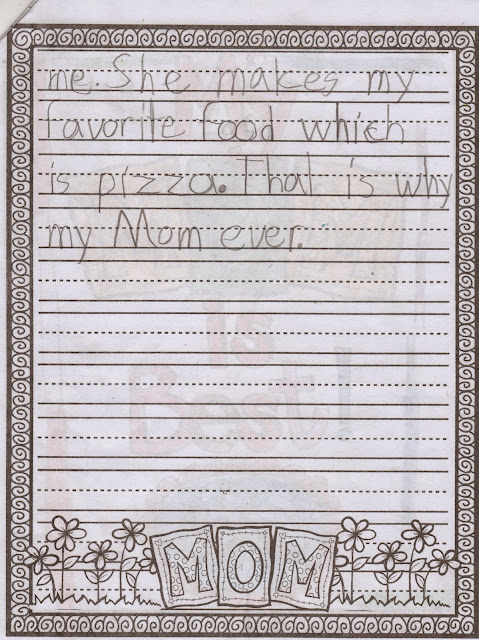 me. She makes my
favorite food which
is pizza. That is why
my Mom ever.
Is
Best!
MOM